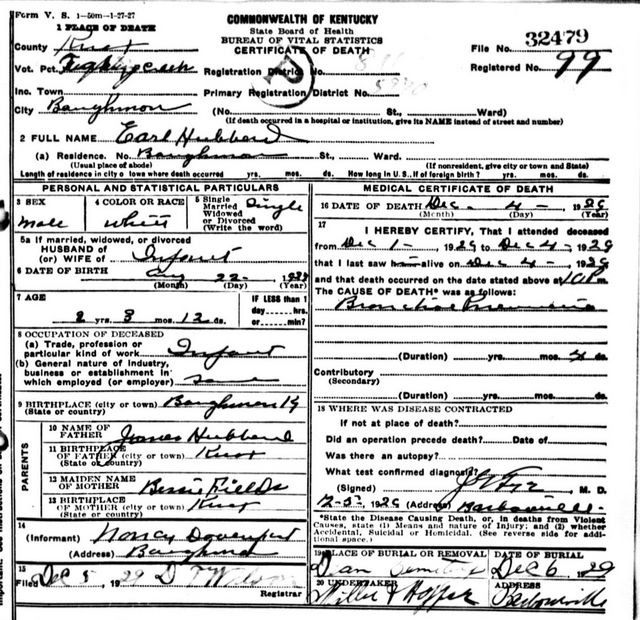 Form V. S. 1-50m-1-27-27
1 PLACE OF DEATH
COMMONWEALTH OF KENTUCKY
State Board of Health
BUREAU OF VITAL STATISTICS
CERTIFICATE OF DEATH
County Knox
File No. 32479
Vot. Pct.
Registration District No.
Registered No. 99
Inc. Town
Primary Registration District No.
City Baughmon
(No. St., Ward)
(If death occurred in a hospital or institution, give its NAME instead of street and number)
2 FULL NAME Earl Hubbard
(a) Residence. No. Baughman St., Ward.
(Usual place of abode) (If nonresident, give city or town and State)
Length of residence in city o town where death occurred yrs. mos. ds. How long in U. S., if of foreign birth? yrs. mos. ds.
PERSONAL AND STATISTICAL PARTICULARS
3 SEX
male
4 COLOR OR RACE
white
5 Single Married Widowed or Divorced (Write the word)
Single
5a If married, widowed, or divorced
HUSBAND of
(or) WIFE of Infant
6 DATE OF BIRTH 22-
(Month) (Day) (Year)
7 AGE
2 yrs. 3 mos. 12 ds.
IF LESS than 1
day hrs.
or min?
8 OCCUPATION OF DECEASED
(a) Trade, profession or
particular kind of work Infant
(b) General nature of industry,
business or establishment in
which employed (or employer) same
9 BIRTHPLACE (city or town) Baughmon Ky
(State or country)
PARENTS
10 NAME OF
FATHER James Hubbard
11 BIRTHPLACE
OF FATHER (city or town) Knox
(State or country)
12 MAIDEN NAME
OF MOTHER Bessie Fields
13 BIRTHPLACE
OF MOTHER (city or town) Knox
(State or country)
14
(Informant) Nancy Davenport
(Address) Baughman
15
Filed Dec 5, 1929 D T Wilson
Registrar
MEDICAL CERTIFICATE OF DEATH
16 DATE OF DEATH Dec. 4- 1929
(Month) (Day) (Year)
17
I HEREBY CERTIFY, That I attended deceased
from Dec 1- , 1929 to Dec 4- , 1929
that I last saw him alive on Dec 4- , 1929
and that death occurred on the date stated above at
The CAUSE OF DEATH* was as follows:
Bronchial Pneumonia
(Duration) yrs. mos. 4 ds.
Contributory
(Secondary)
(Duration) yrs. mos. ds.
18 WHERE WAS DISEASE CONTRACTED
If not at place of death?
Did an operation precede death? Date of
Was there an autopsy?
What test confirmed diagnosis?
(Signed) M. D.
12-5- , 1929 (Address) Barbourville
*State the Disease Causing Death, or, in deaths from Violent
Causes, state (1) Means and nature of Injury; and (2) whether
Accidental, Suicidal or Homicidal. (See reverse side for addi-
tional space.)
19 PLACE OF BURIAL OR REMOVAL
Cemetery
DATE OF BURIAL
Dec 6, 29
20 UNDERTAKER
ADDRESS
Barbourville